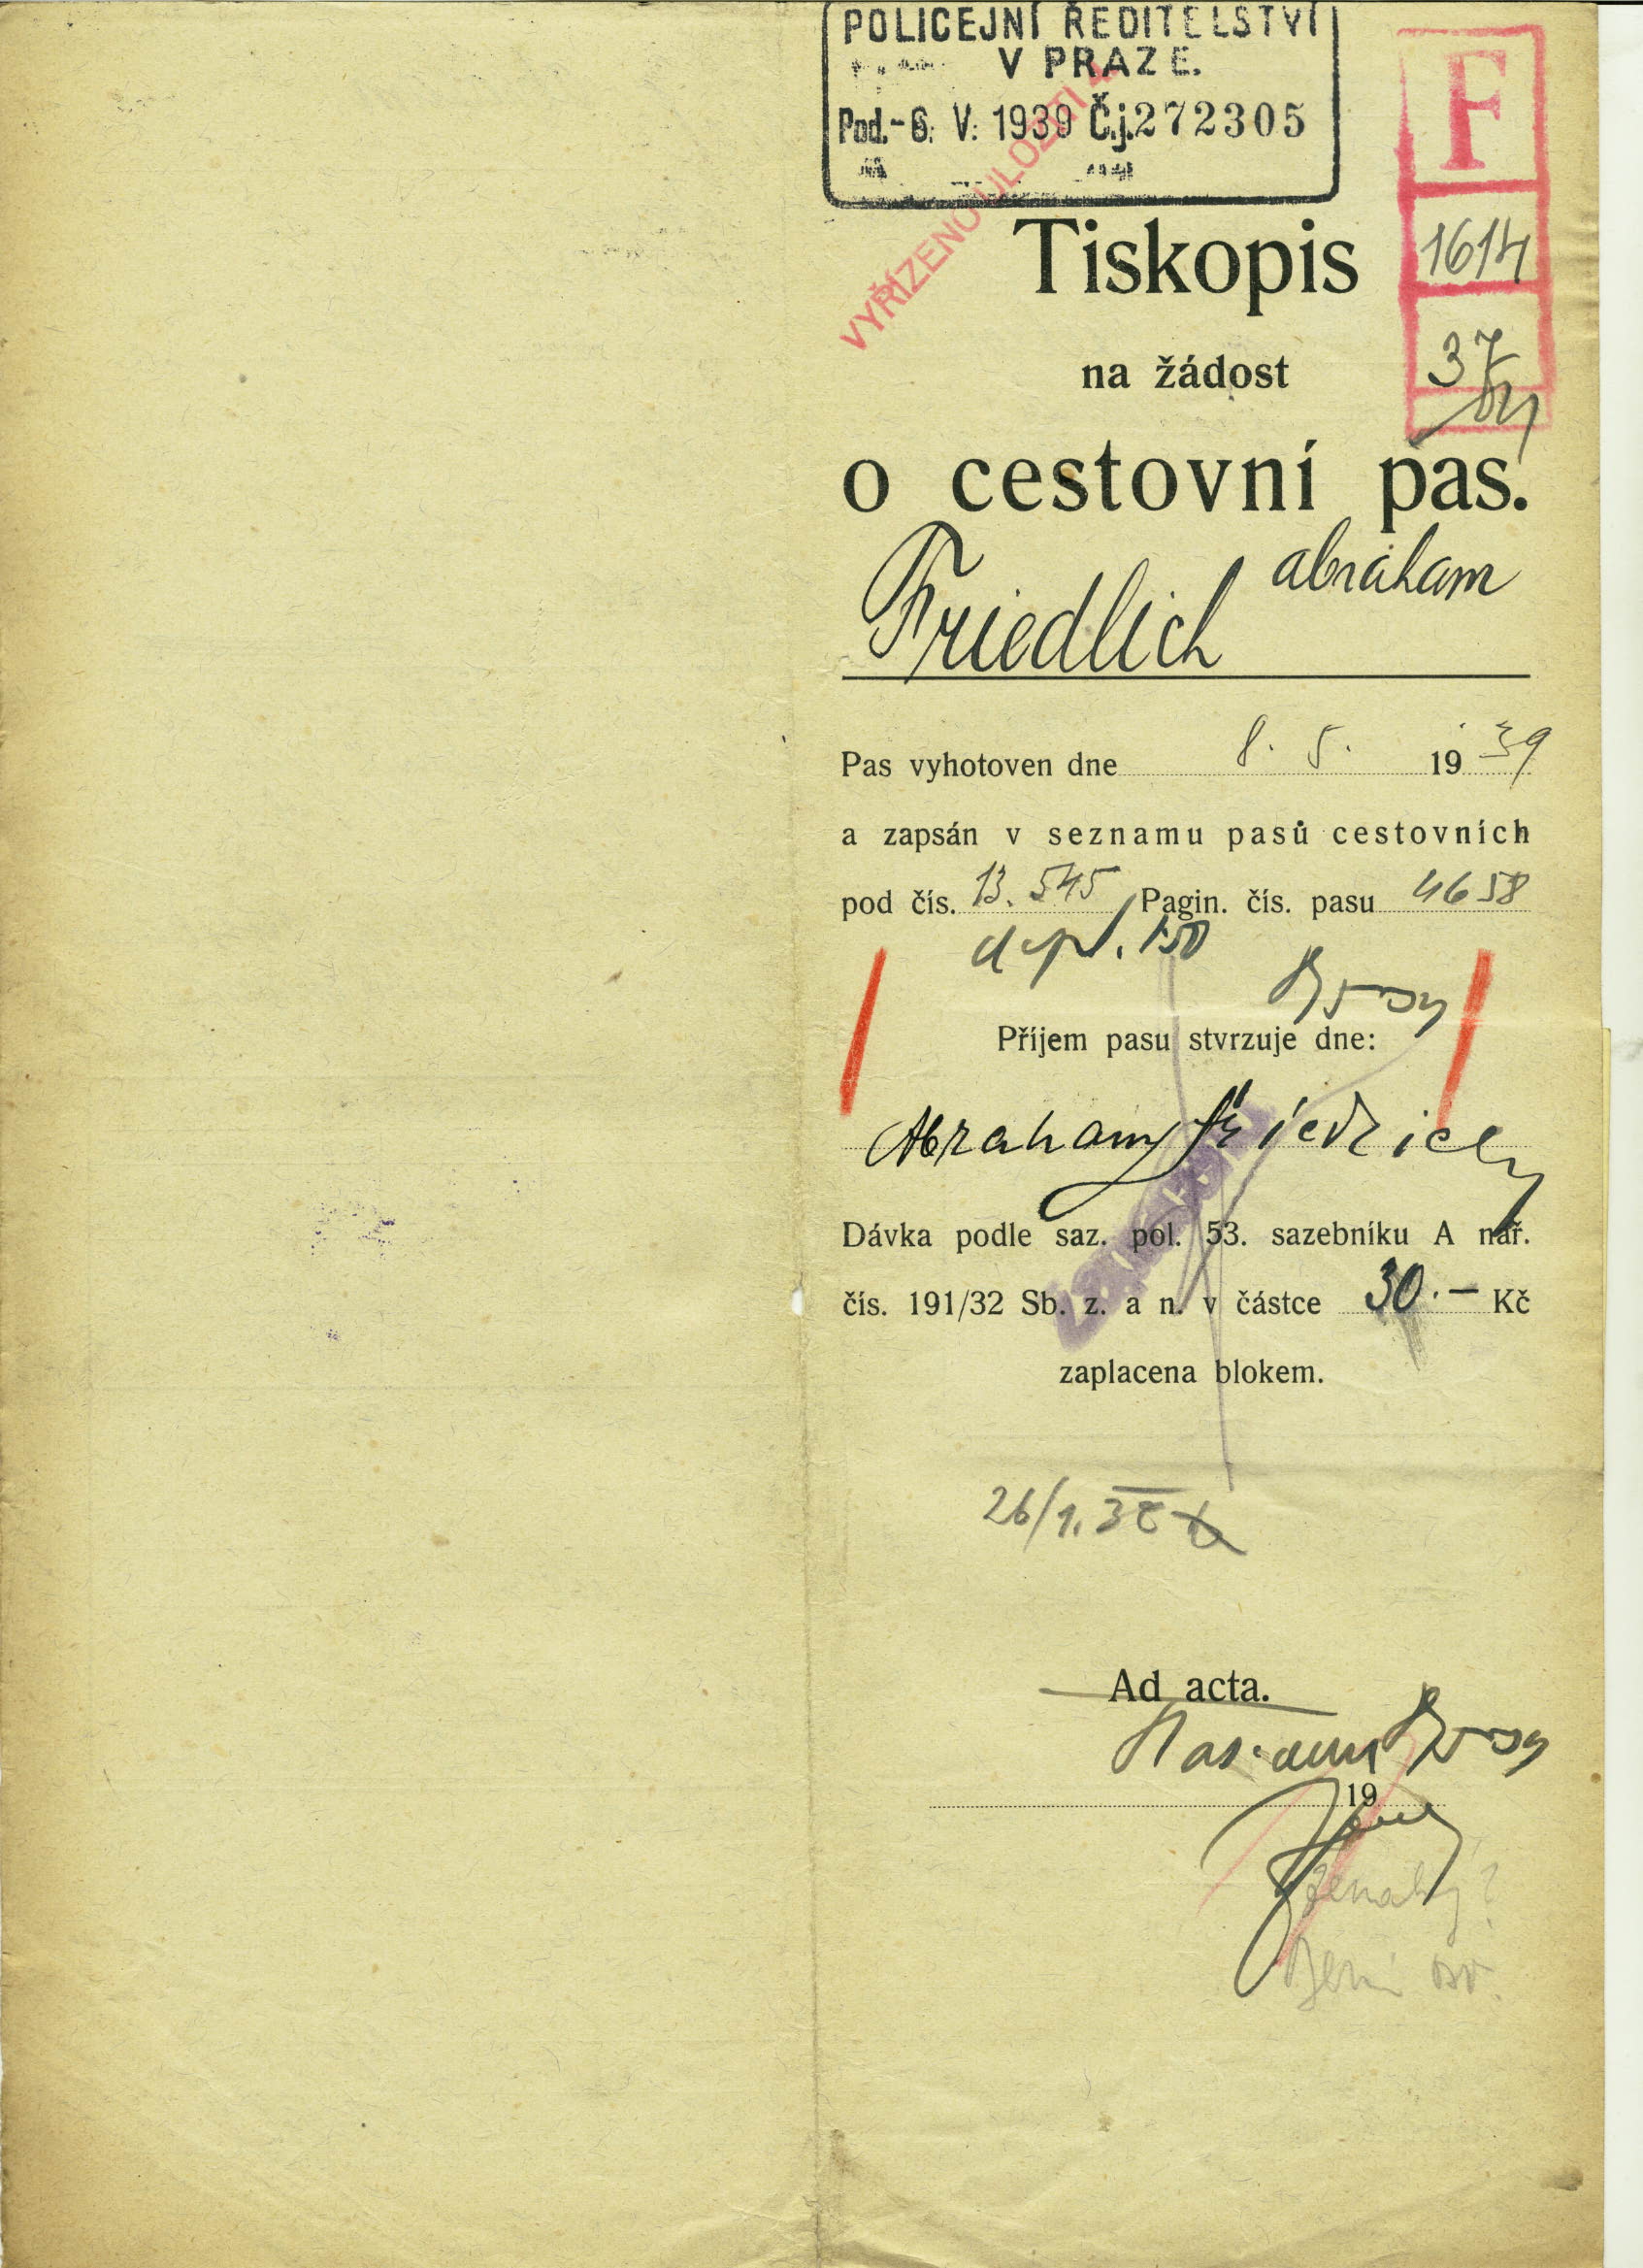 POLICEJNÍ ŘEDITELSTVÍ
V PRAZE.
Pod.-6. V. 1939 Č.j. 272305
VYŘÍZENO ULOŽITI
F
1614
37
Tiskopis
na žádost
o cestovní pas.
Friedlich abraham
Pas vyhotoven dne 8. 5. 1939
a zapsán v seznamu pasů cestovních
pod čís. 13.545 Pagin. čís. pasu 4658
dopl. 150
Příjem pasu stvrzuje dne:
Abraham Friedrich
Dávka podle saz. pol. 53. sazebníku A nař.
čís. 191/32 Sb. z. a n. v částce 30.— Kč
zaplacena blokem.
26/1.
Ad acta.
19